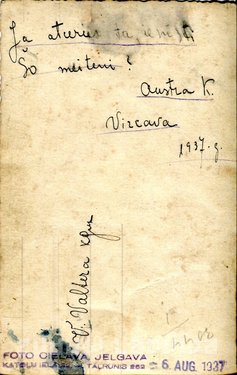 Ja atceries
Šo meiteni?
Austra K.
Vircava
1937. g.
V. Valtera kgm
FOTO CIELAVA, JELGAVA
KATOĻU IELA TALRUNIS 262
6. AUG. 1937